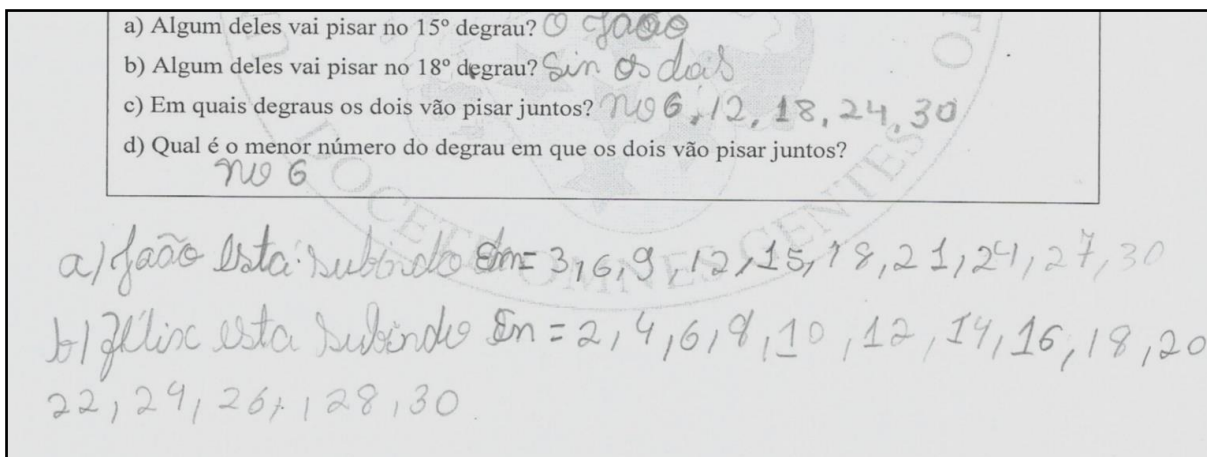 a) Algum deles vai pisar no 15º degrau? O João
b) Algum deles vai pisar no 18º degrau? Sin os dois
c) Em quais degraus os dois vão pisar juntos? no 6, 12, 18, 24, 30
d) Qual é o menor número do degrau em que os dois vão pisar juntos?
no 6
DOCETE OMNES GENTES
a) João esta subindo em = 3, 6, 9, 12, 15, 18, 21, 24, 27, 30
b) Félix esta subindo en = 2, 4, 6, 8, 10, 12, 14, 16, 18, 20
22, 24, 26, , 28, 30